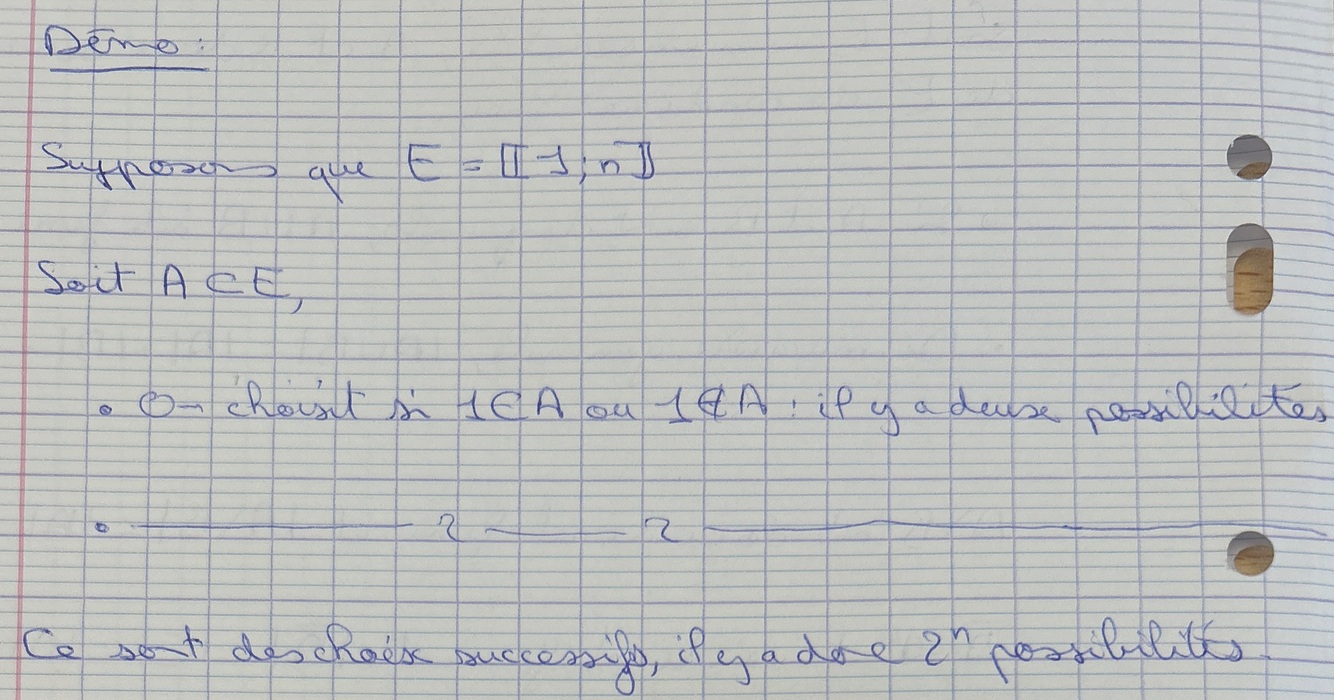 Démo :
Supposons que E = ⟦1 ; n⟧
Soit A ⊂ E,
• On choisit si 1 ∈ A ou 1 ∉ A : il y a deux possibilités
• ——— 2 ——— 2 ———
Ce sont des choix successifs, il y a donc 2ⁿ possibilités.